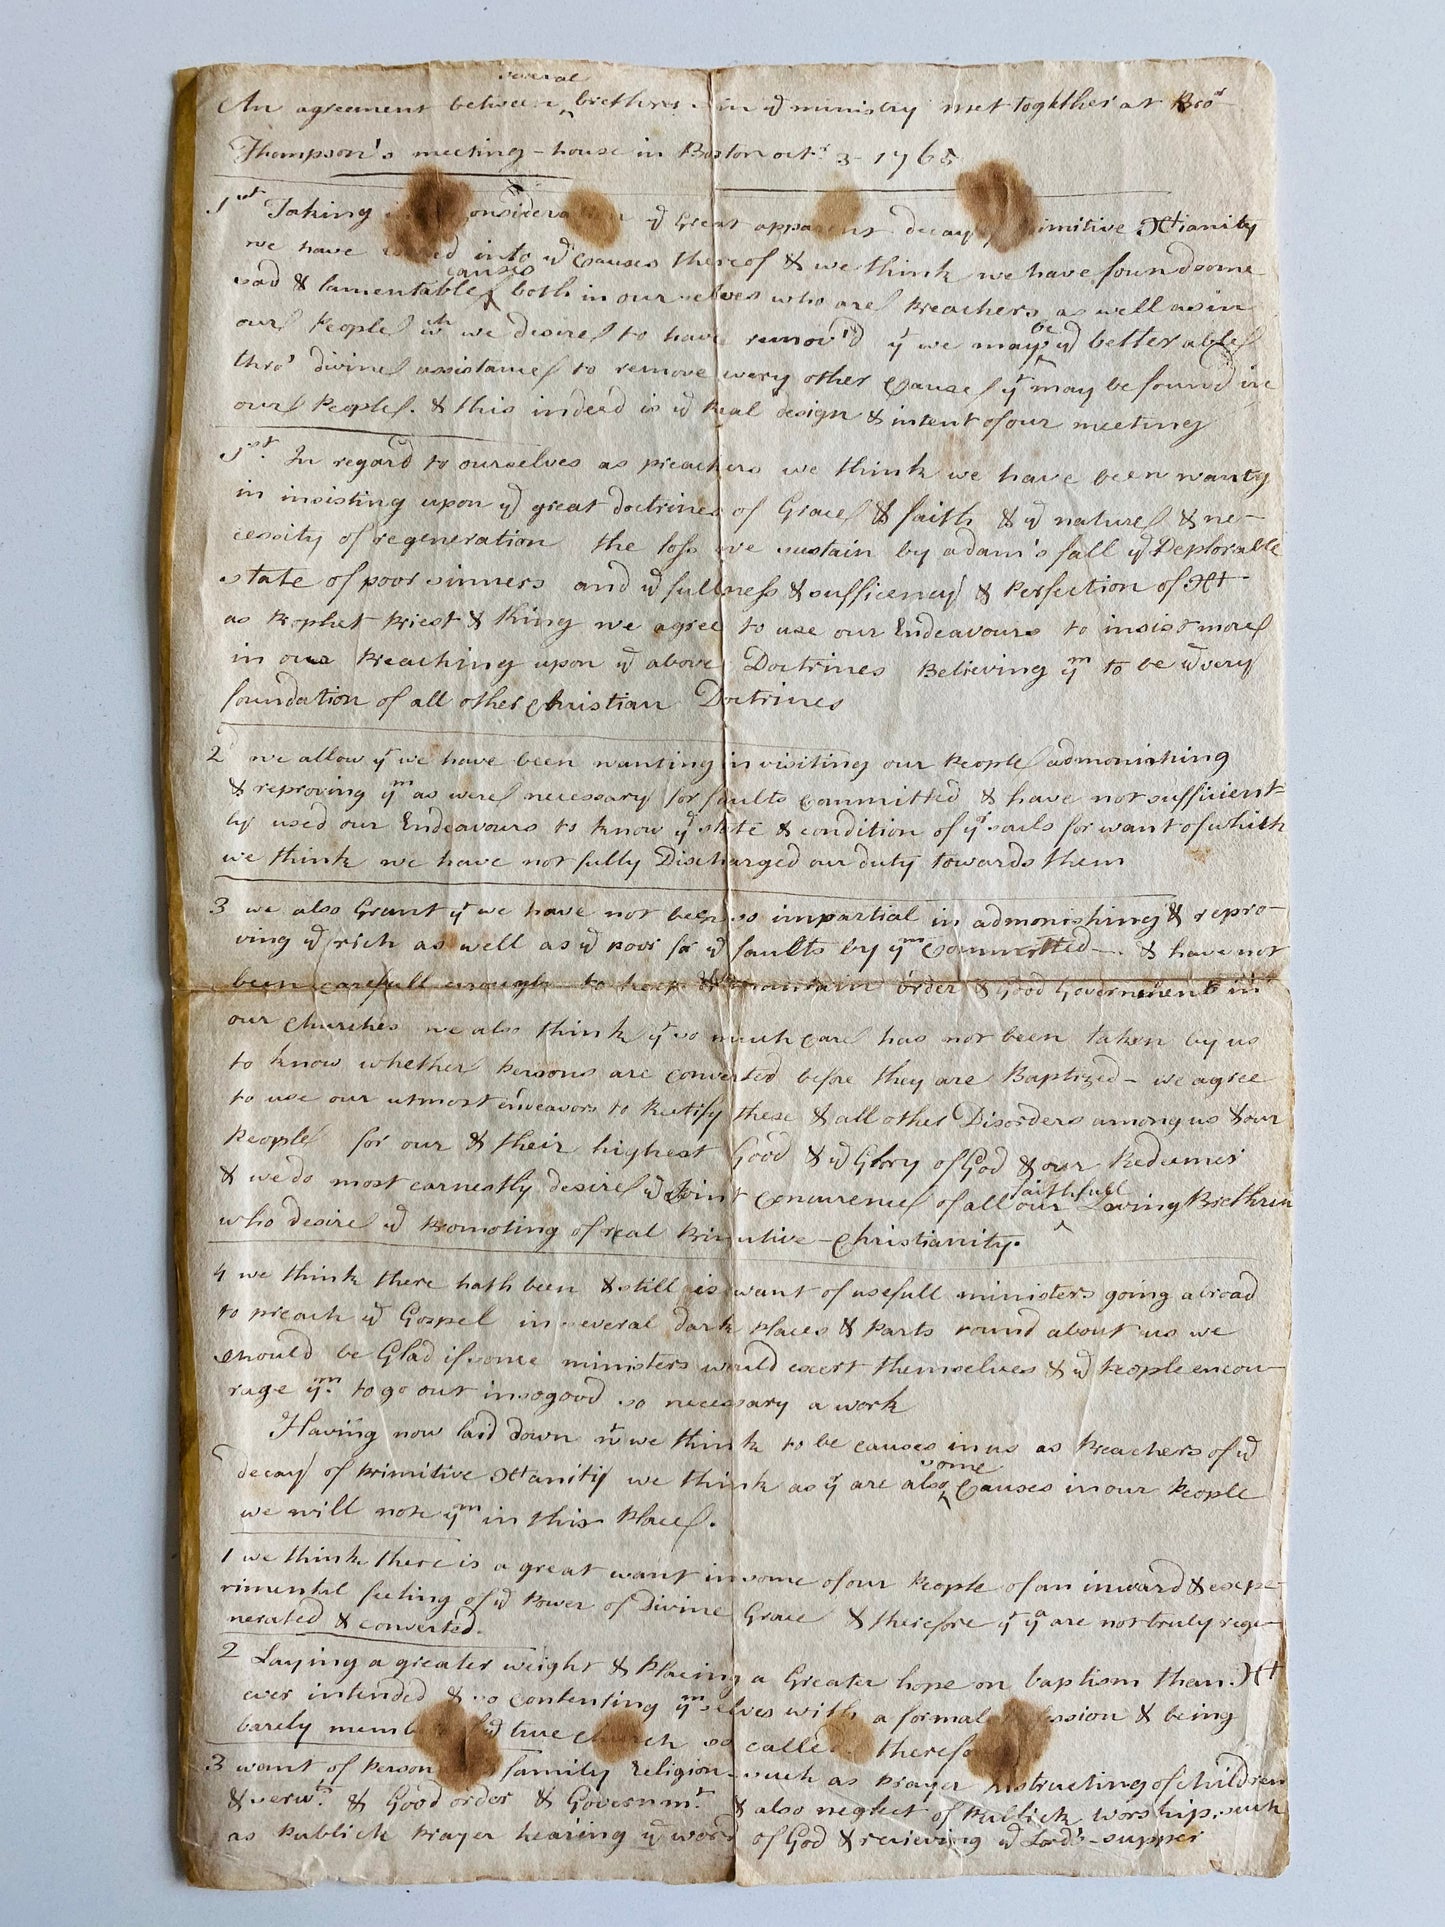 An agreement between several brethren in ye ministry met together at Bror
Thompson's meeting-house in Boston octr. 3 - 1765
1st Taking ye Great apparent decay primitive Xtianity
we have into ye Causes thereof & we think we have found some
sad & lamentable causes both in our selves who are Preachers as well as in
our People wch we desire to have remov'd yt we may be ye better able
thro' divine assistance to remove every other Cause yt may be found in
our People. & this indeed is ye Real design & intent of our meeting
1st. In regard to ourselves as preachers we think we have been wanty
in insisting upon ye great doctrines of Grace & faith & ye nature & ne-
cessity of regeneration the loss we sustain by adam's fall ye Deplorable
state of poor sinners and ye fullness & sufficency & Perfection of Xt
as Prophet Priest & King we agree to use our Endeavours to insist more
in our Preaching upon ye above Doctrines Believing ym to be ye very
foundation of all other Christian Doctrines
2d we allow yt we have been wanting in visiting our People admonishing
& reproving ym as were necessary for faults Committed & have not sufficient-
ly used our Endeavours to know ye state & condition of yr souls for want of which
we think we have not fully Discharged our duty towards them
3 we also Grant yt we have not been so impartial in admonishing & repro-
ving ye rich as well as ye poor for ye faults by ym Committed - & have not
been carefull enough to keep & maintain order & Good Government in
our Churches we also think yt so much Care has not been taken by us
to know whether Persons are converted before they are Baptized - we agree
to use our utmost indeavors to Rectify these & all other Disorders among us & our
People for our & their highest Good & ye Glory of God & our Redeemer
& we do most earnestly desire ye Joint Concurence of all our faithfull Loving Brethren
who desire ye Promoting of real Primutive - Christianity.
4 we think there hath been & still is want of usefull ministers going abroad
to preach ye Gospel in several dark Places & Parts round about us we
should be Glad if some ministers would exert themselves & ye People encou-
rage ym. to go out in so good so necessary a work
Having now laid down wt we think to be causes in us as Preachers of ye
decay of Primitive Xtanity we think as yr are also some Causes in our People
we will note ym in this Place.
1 we think there is a great want in some of our People of an inward & expe-
rimental feeling of ye Power of Divine Grace & therefore yt ya are not truly rege-
nerated & converted.
2 Laying a greater weight & Placing a Greater hope on baptism than Xt
ever intended & so Contenting ym selves with a formal & being
barely true church so called
3 want of family Religion - such as Prayer Instructing of children
& servts. & Good order & Governmt. & also neglect of Publick worship, such
as Publick Prayer hearing ye word of God & recieving ye Lord's-supper